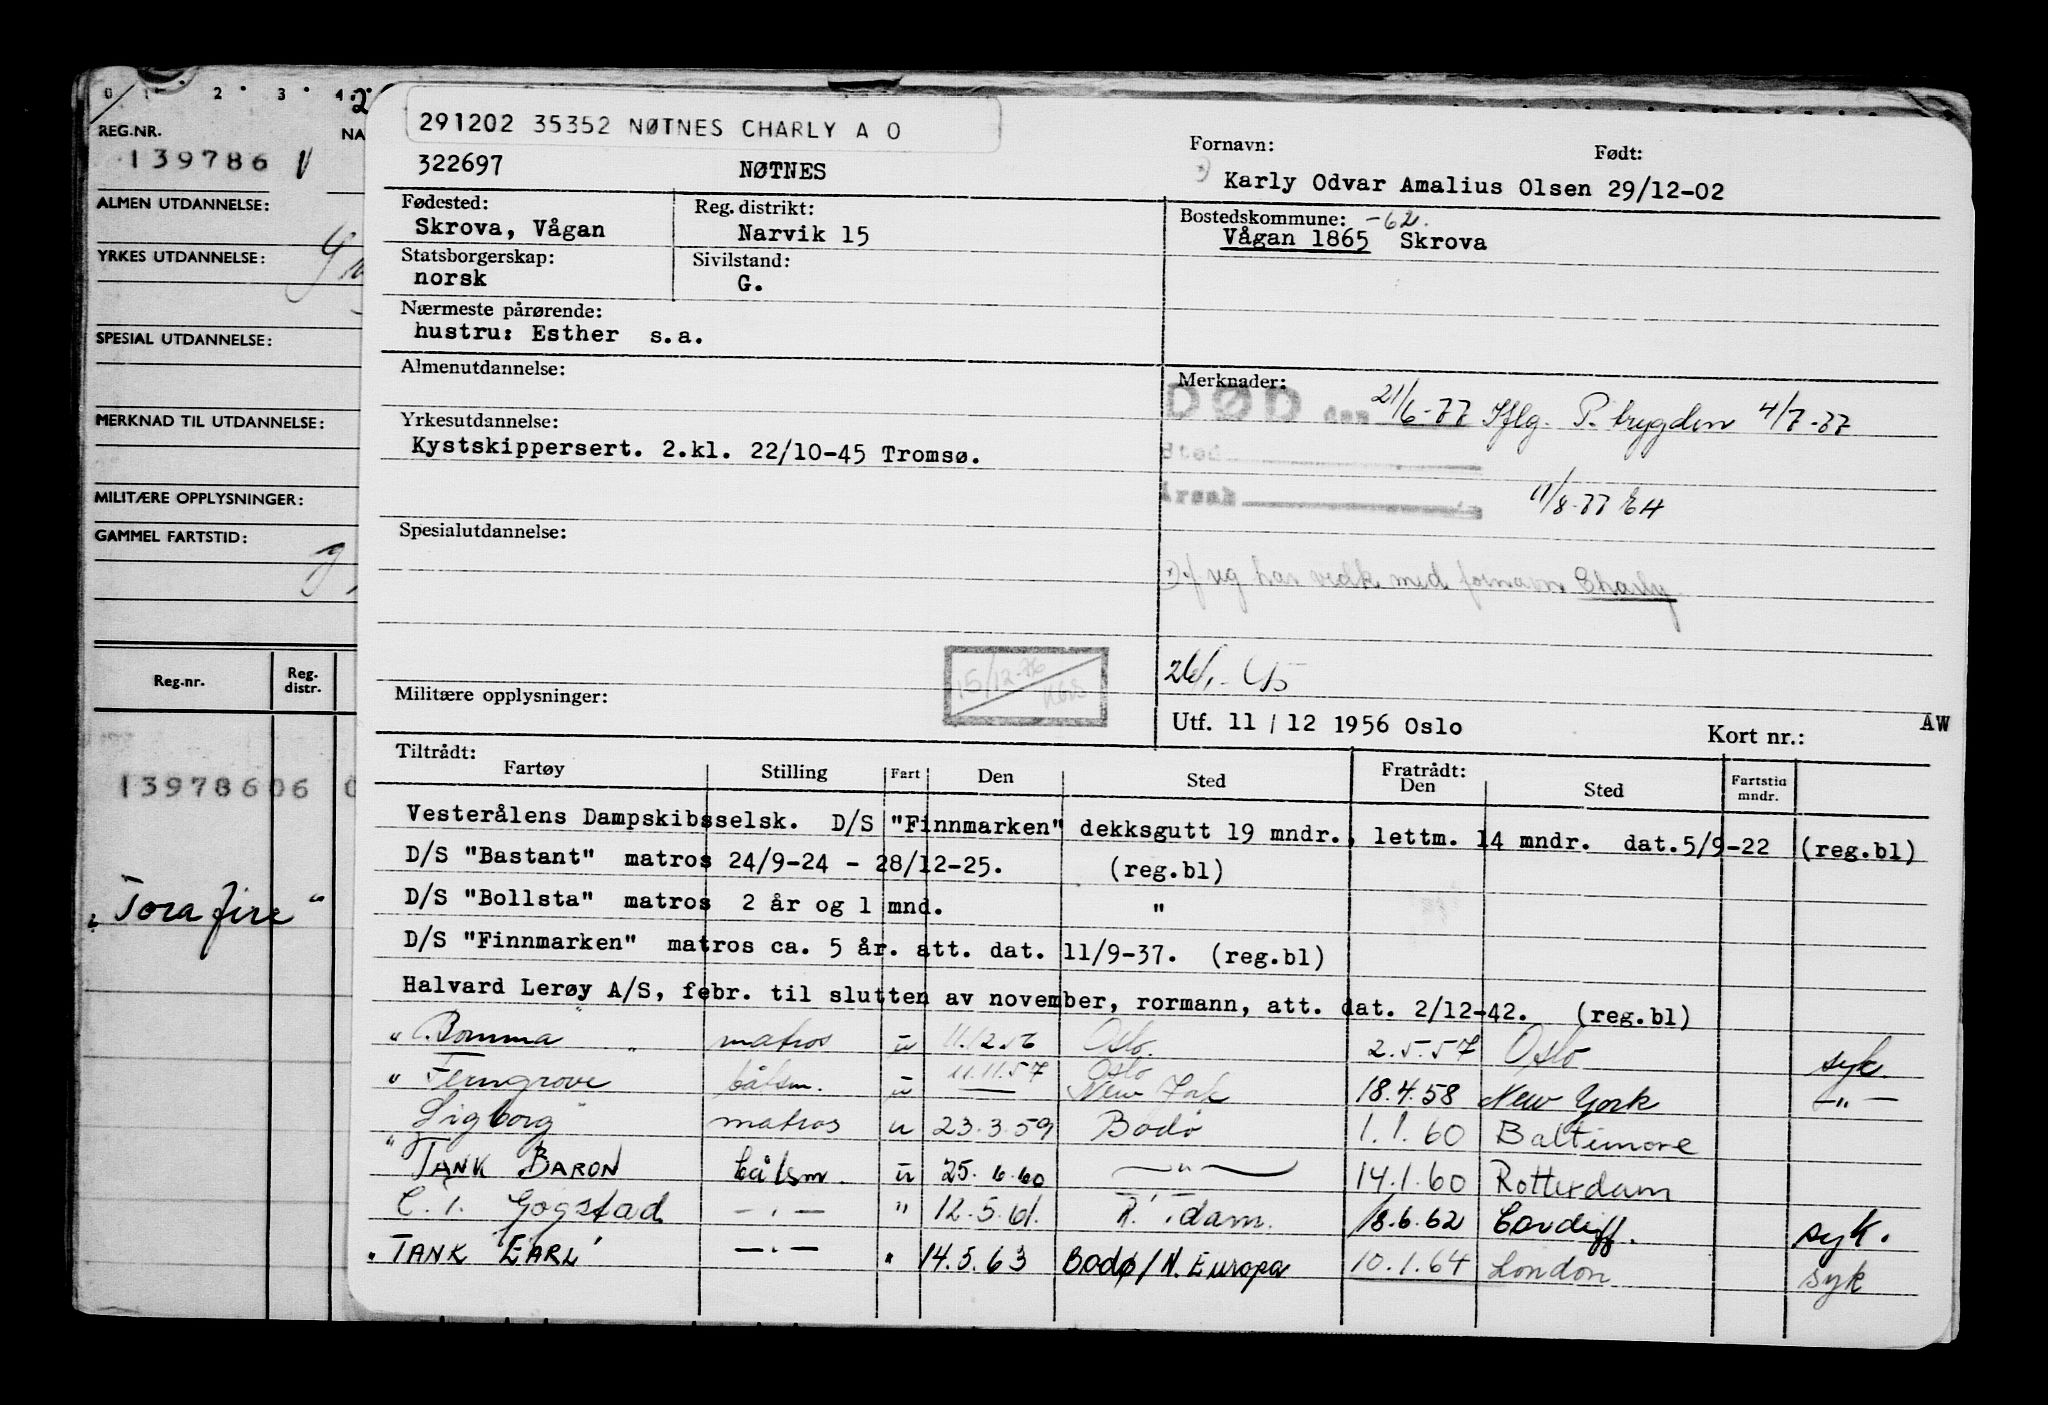 0 1 2 3 4
REG.NR. NA
139786 V
ALMEN UTDANNELSE:
YRKES UTDANNELSE:
SPESIAL UTDANNELSE:
MERKNAD TIL UTDANNELSE:
MILITÆRE OPPLYSNINGER:
GAMMEL FARTSTID:
Reg.nr. Reg. distr.
13978606 0
"Torafire"
291202 35352 NØTNES CHARLY A O
322697 NØTNES
Fornavn: Født:
Karly Odvar Amalius Olsen 29/12-02
Fødested: Reg. distrikt: Bostedskommune: -62.
Skrova, Vågan Narvik 15 Vågan 1865 Skrova
Statsborgerskap: Sivilstand:
norsk G.
Nærmeste pårørende:
hustru: Esther s.a.
Almenutdannelse:
Merknader:
DØD den 21/6-77 Iflg. P. trygden 4/7-77
Sted
Årsak
11/8-77 EH
Yrkesutdannelse:
Kystskippersert. 2.kl. 22/10-45 Tromsø.
Spesialutdannelse:
med fornavn Charly
15/12-76
Militære opplysninger:
Utf. 11 / 12 1956 Oslo Kort nr.: AW
Tiltrådt: Fratrådt:
Fartøy Stilling Fart Den Sted Den Sted Fartstid mndr.
Vesterålens Dampskibsselsk. D/S "Finnmarken" dekksgutt 19 mndr., lettm. 14 mndr. dat.5/9-22 (reg.bl)
D/S "Bastant" matros 24/9-24 - 28/12-25. (reg.bl)
D/S "Bollsta" matros 2 år og 1 mnd. "
D/S "Finnmarken" matros ca. 5 år. att. dat. 11/9-37. (reg.bl)
Halvard Lerøy A/S, febr. til slutten av november, rormann, att. dat. 2/12-42. (reg.bl)
" Bomma " matros u 11.12.56 Oslo. 2.5.57 Oslo syk.
11.11.57 Oslo
" Ferngrove båtsm. u — New York 18.4.58 New York —"—
Sigborg " matros u 23.3.59 Bodø 1.1.60 Baltimore
" TANK BARON båtsm. u 25.6.60 —"— 14.1.60 Rotterdam
C. T. Gogstad —"— " 12.5.61. R.'dam. 18.6.62 Cardiff. syk.
" TANK EARL" —"— " 14.5.63 Bodø/N.Europa 10.1.64 London syk